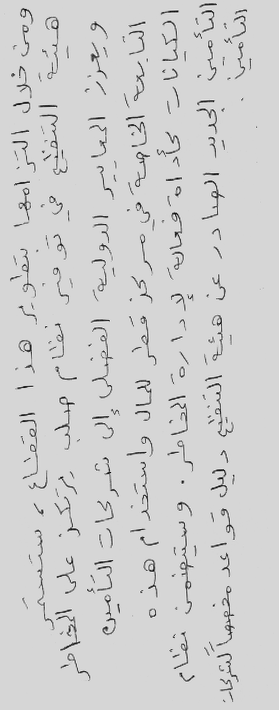 ومن خلال التزامها بتطوير هذا القطاع، ستستمر
هيئة التنظيم في توفير نظام صلب يرتكز على المخاطر
ويعزز المعايير الدولية الفضلى إلى شركات التأمين
التابعة الخاصة في مركز قطر للمال واستخدام هذه
الكيانات كأداة فعالة لإدارة المخاطر. وسيتضمن نظام
التأمين الجديد الصادر عن هيئة التنظيم دليل قواعد مخصصاً لشركات
التأمين.